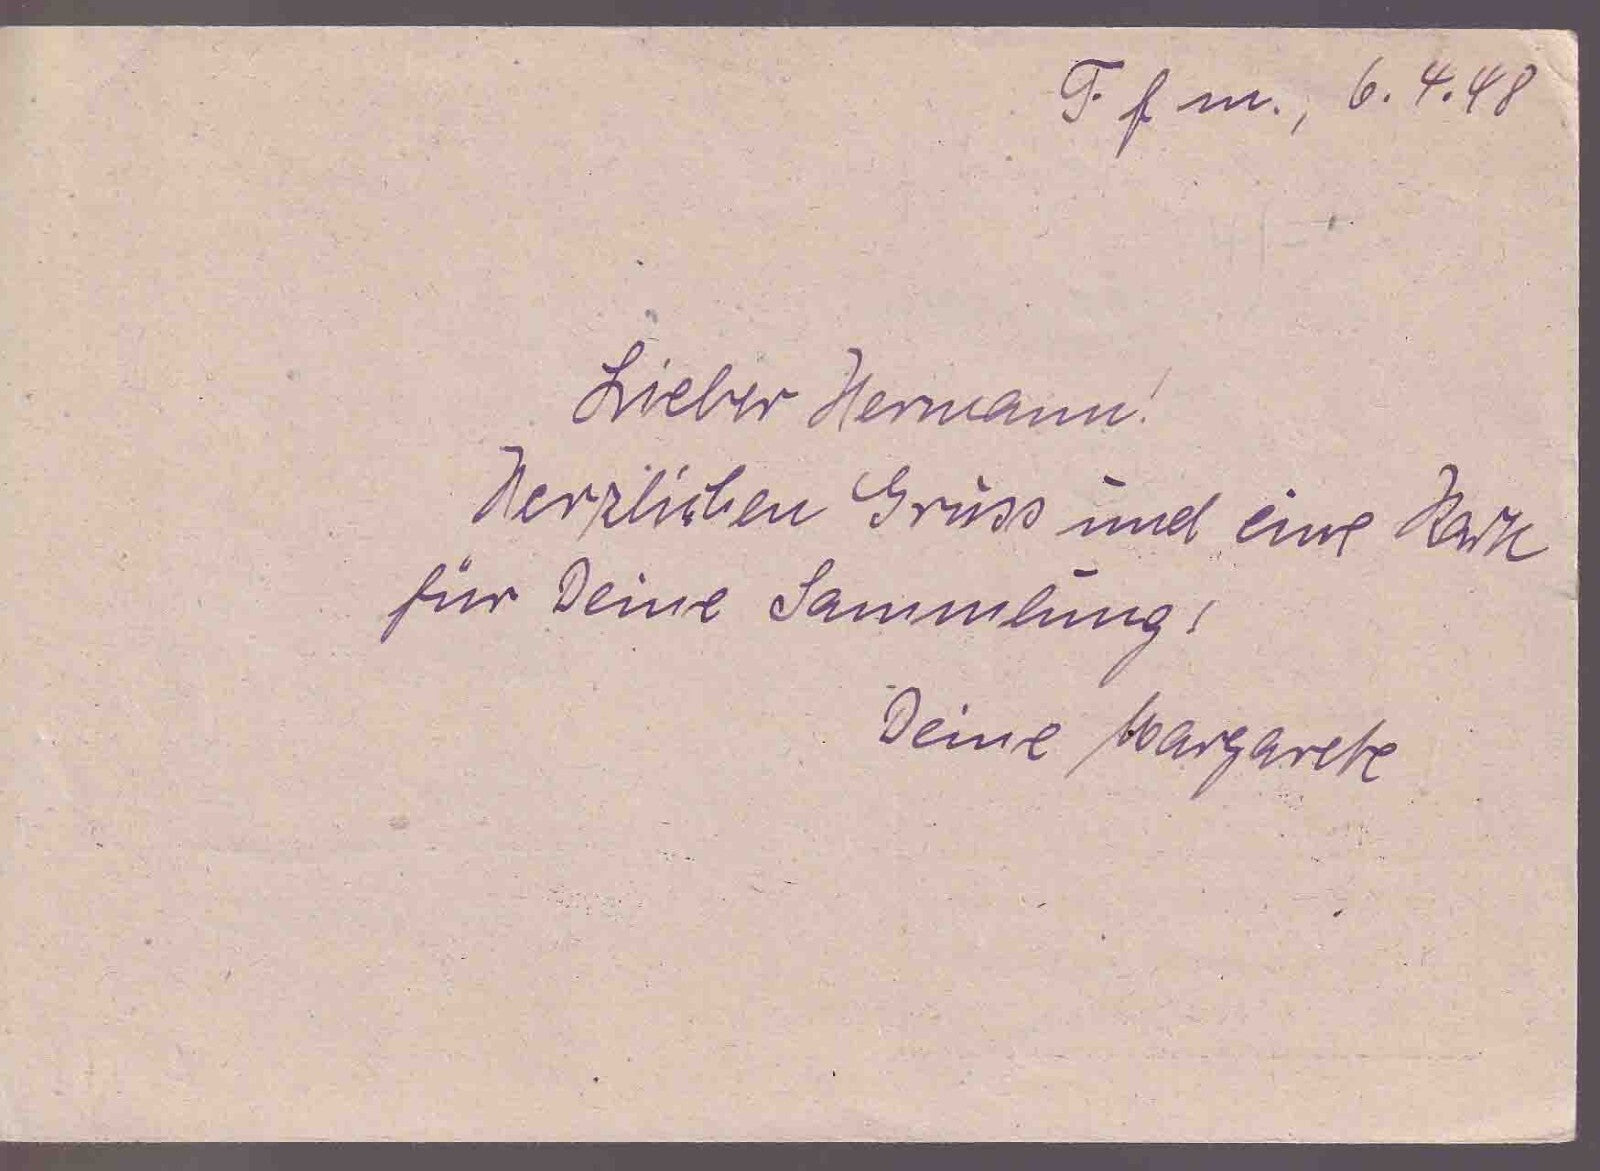 Ffm., 6.4.48
Lieber Hermann!
Herzlichen Grüss und eine Karte
für Deine Sammlung!
Deine Margarete